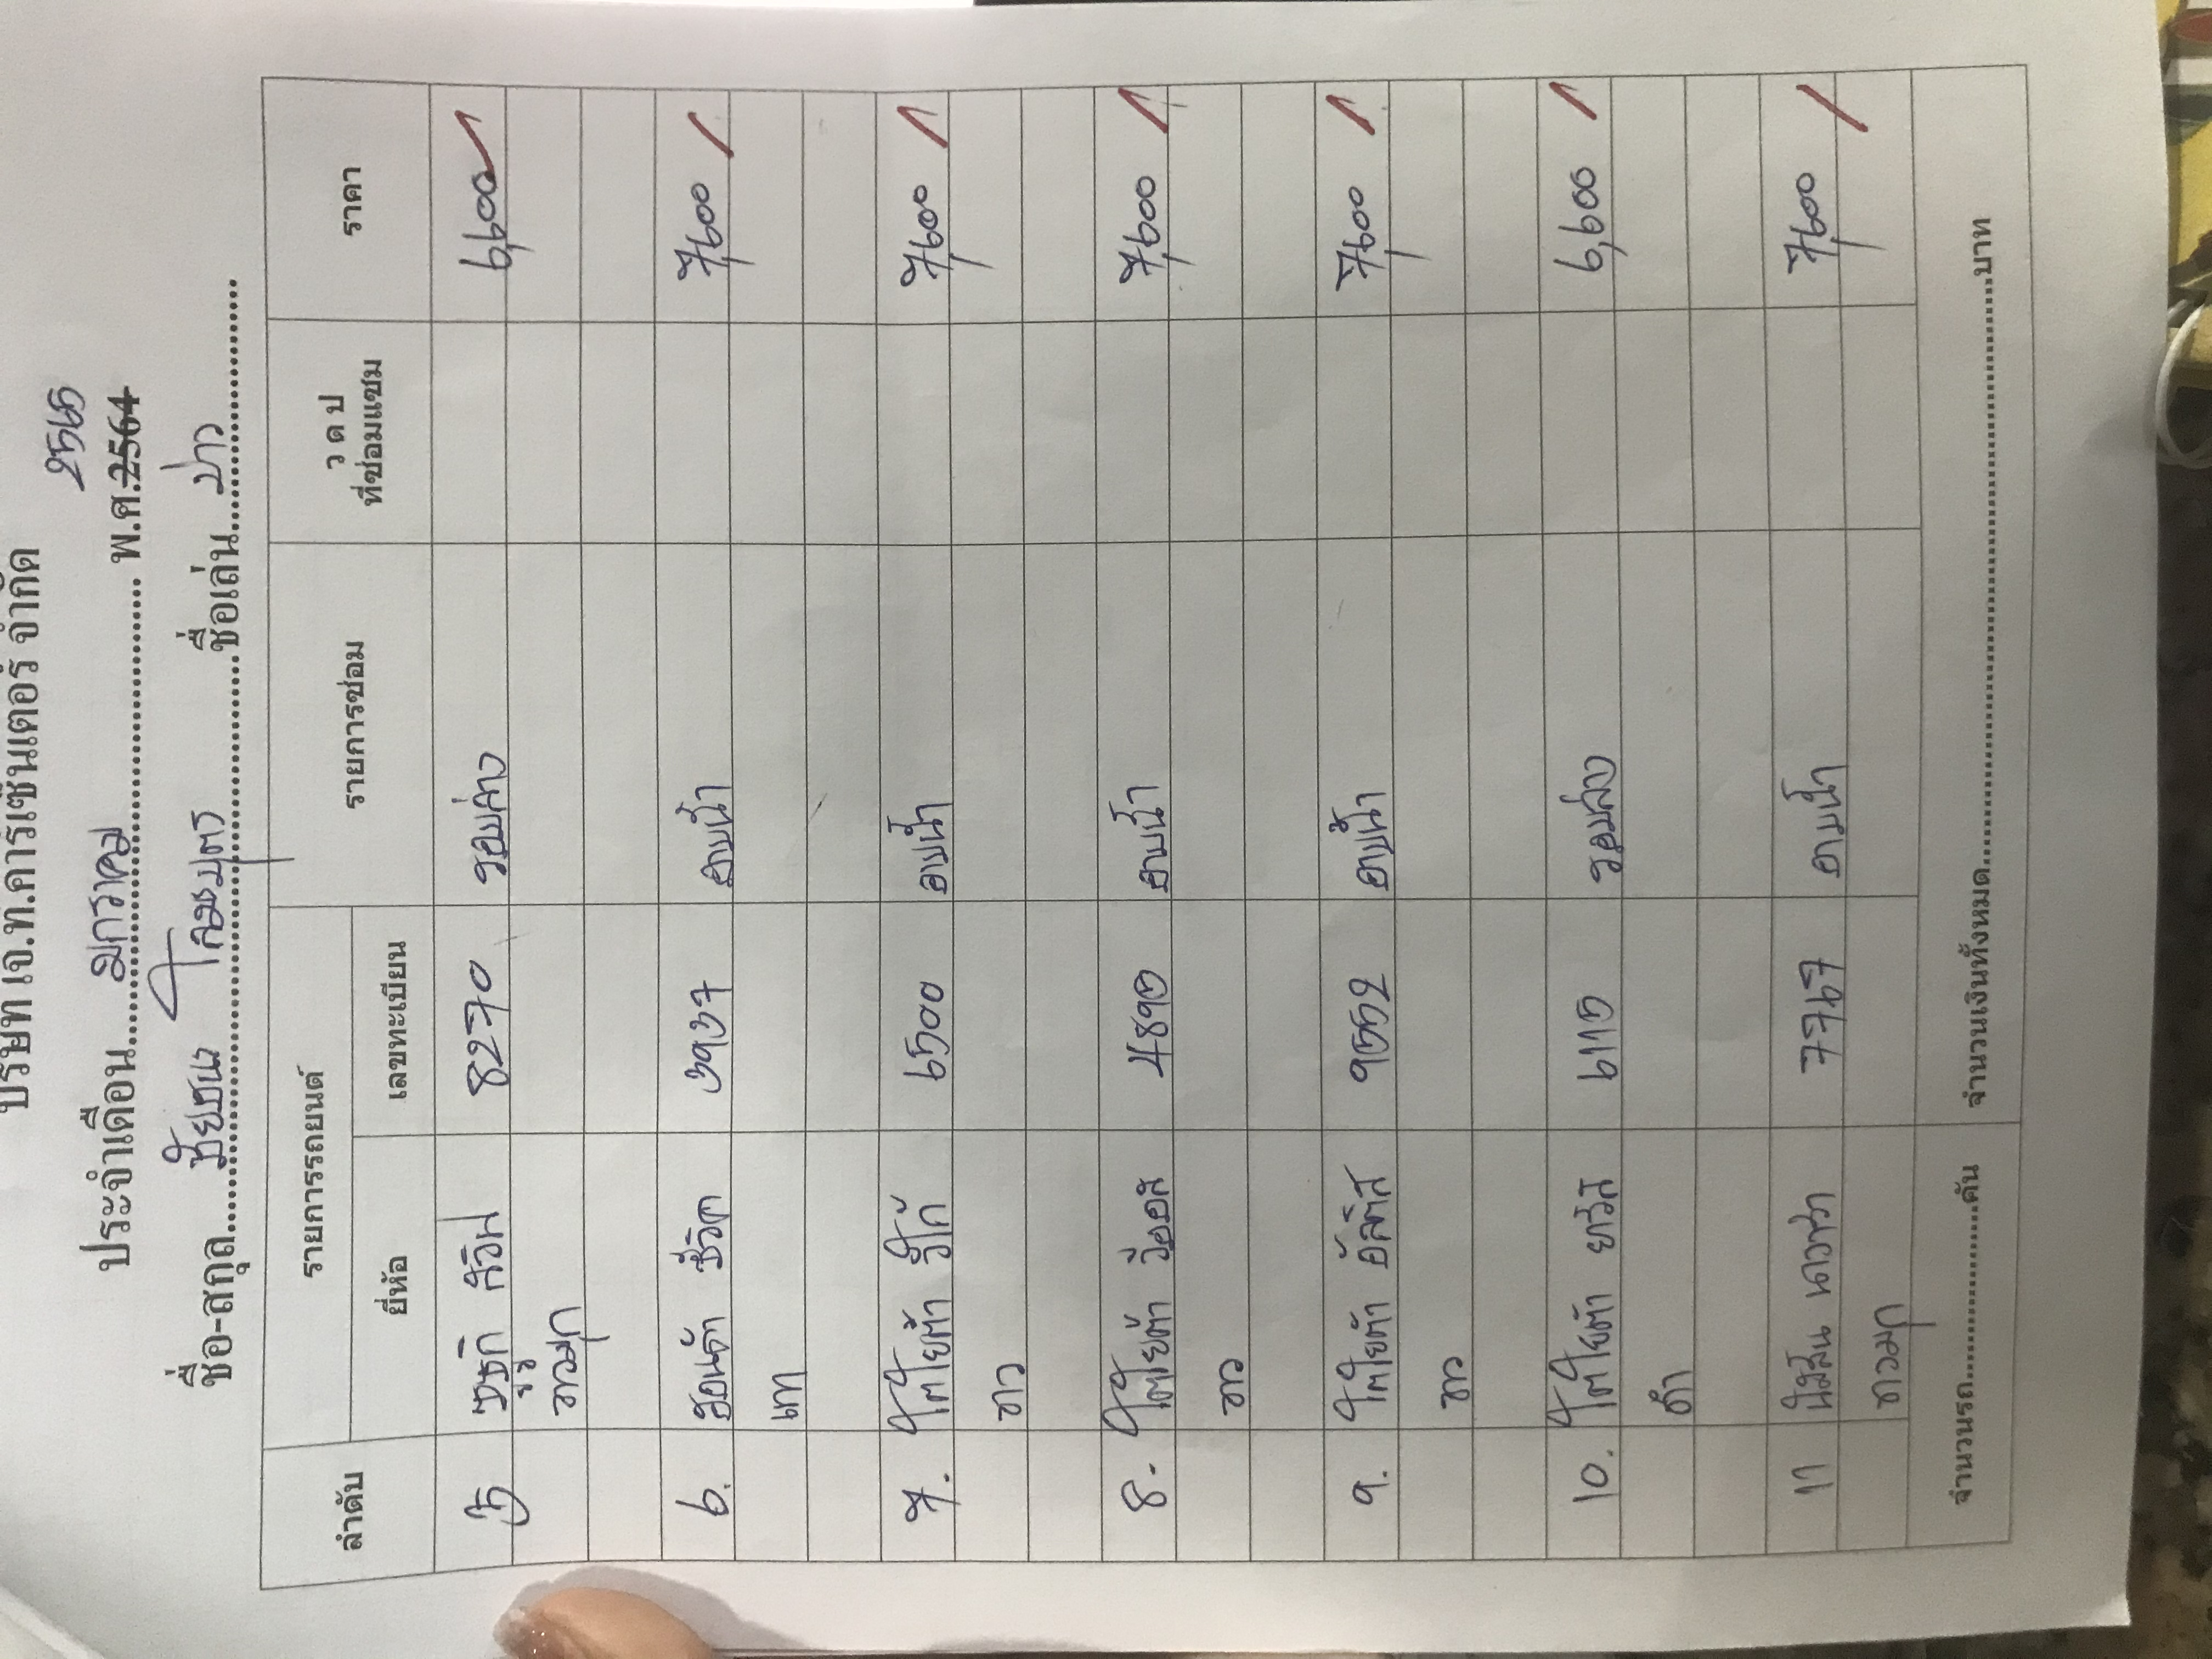 บริษัท เจ.ท.คาร์เซ็นเตอร์ จำกัด
ประจำเดือน มกราคม พ.ศ. 2564 2565
ชื่อ-สกุล ชัยชนะ ชื่อเล่น บ่าว
ลำดับ รายการรถยนต์ รายการซ่อม ว ด ป ราคา
ยี่ห้อ เลขทะเบียน ที่ซ่อมแซม
5 ซูซูกิ สวิฟ 8270 รอบล่าง 6,600
ขาวมุก
6. ฮอนด้า ซีวิค 3937 อาบน้ำ 7,600
เทา
7. โตโยต้า วีโก้ 6500 อาบน้ำ 7,600
ขาว
8. โตโยต้า วีออส 4890 อาบน้ำ 7,600
ขาว
9. โตโยต้า อัลติส 9552 อาบน้ำ 7,600
ขาว
10. โตโยต้า ยาริส 6110 รอบล่าง 6,600
ดำ
11 นิสสัน นาวาร่า 7767 อาบน้ำ 7,600
ขาวมุก
จำนวนรถ..............คัน จำนวนเงินทั้งหมด..............บาท